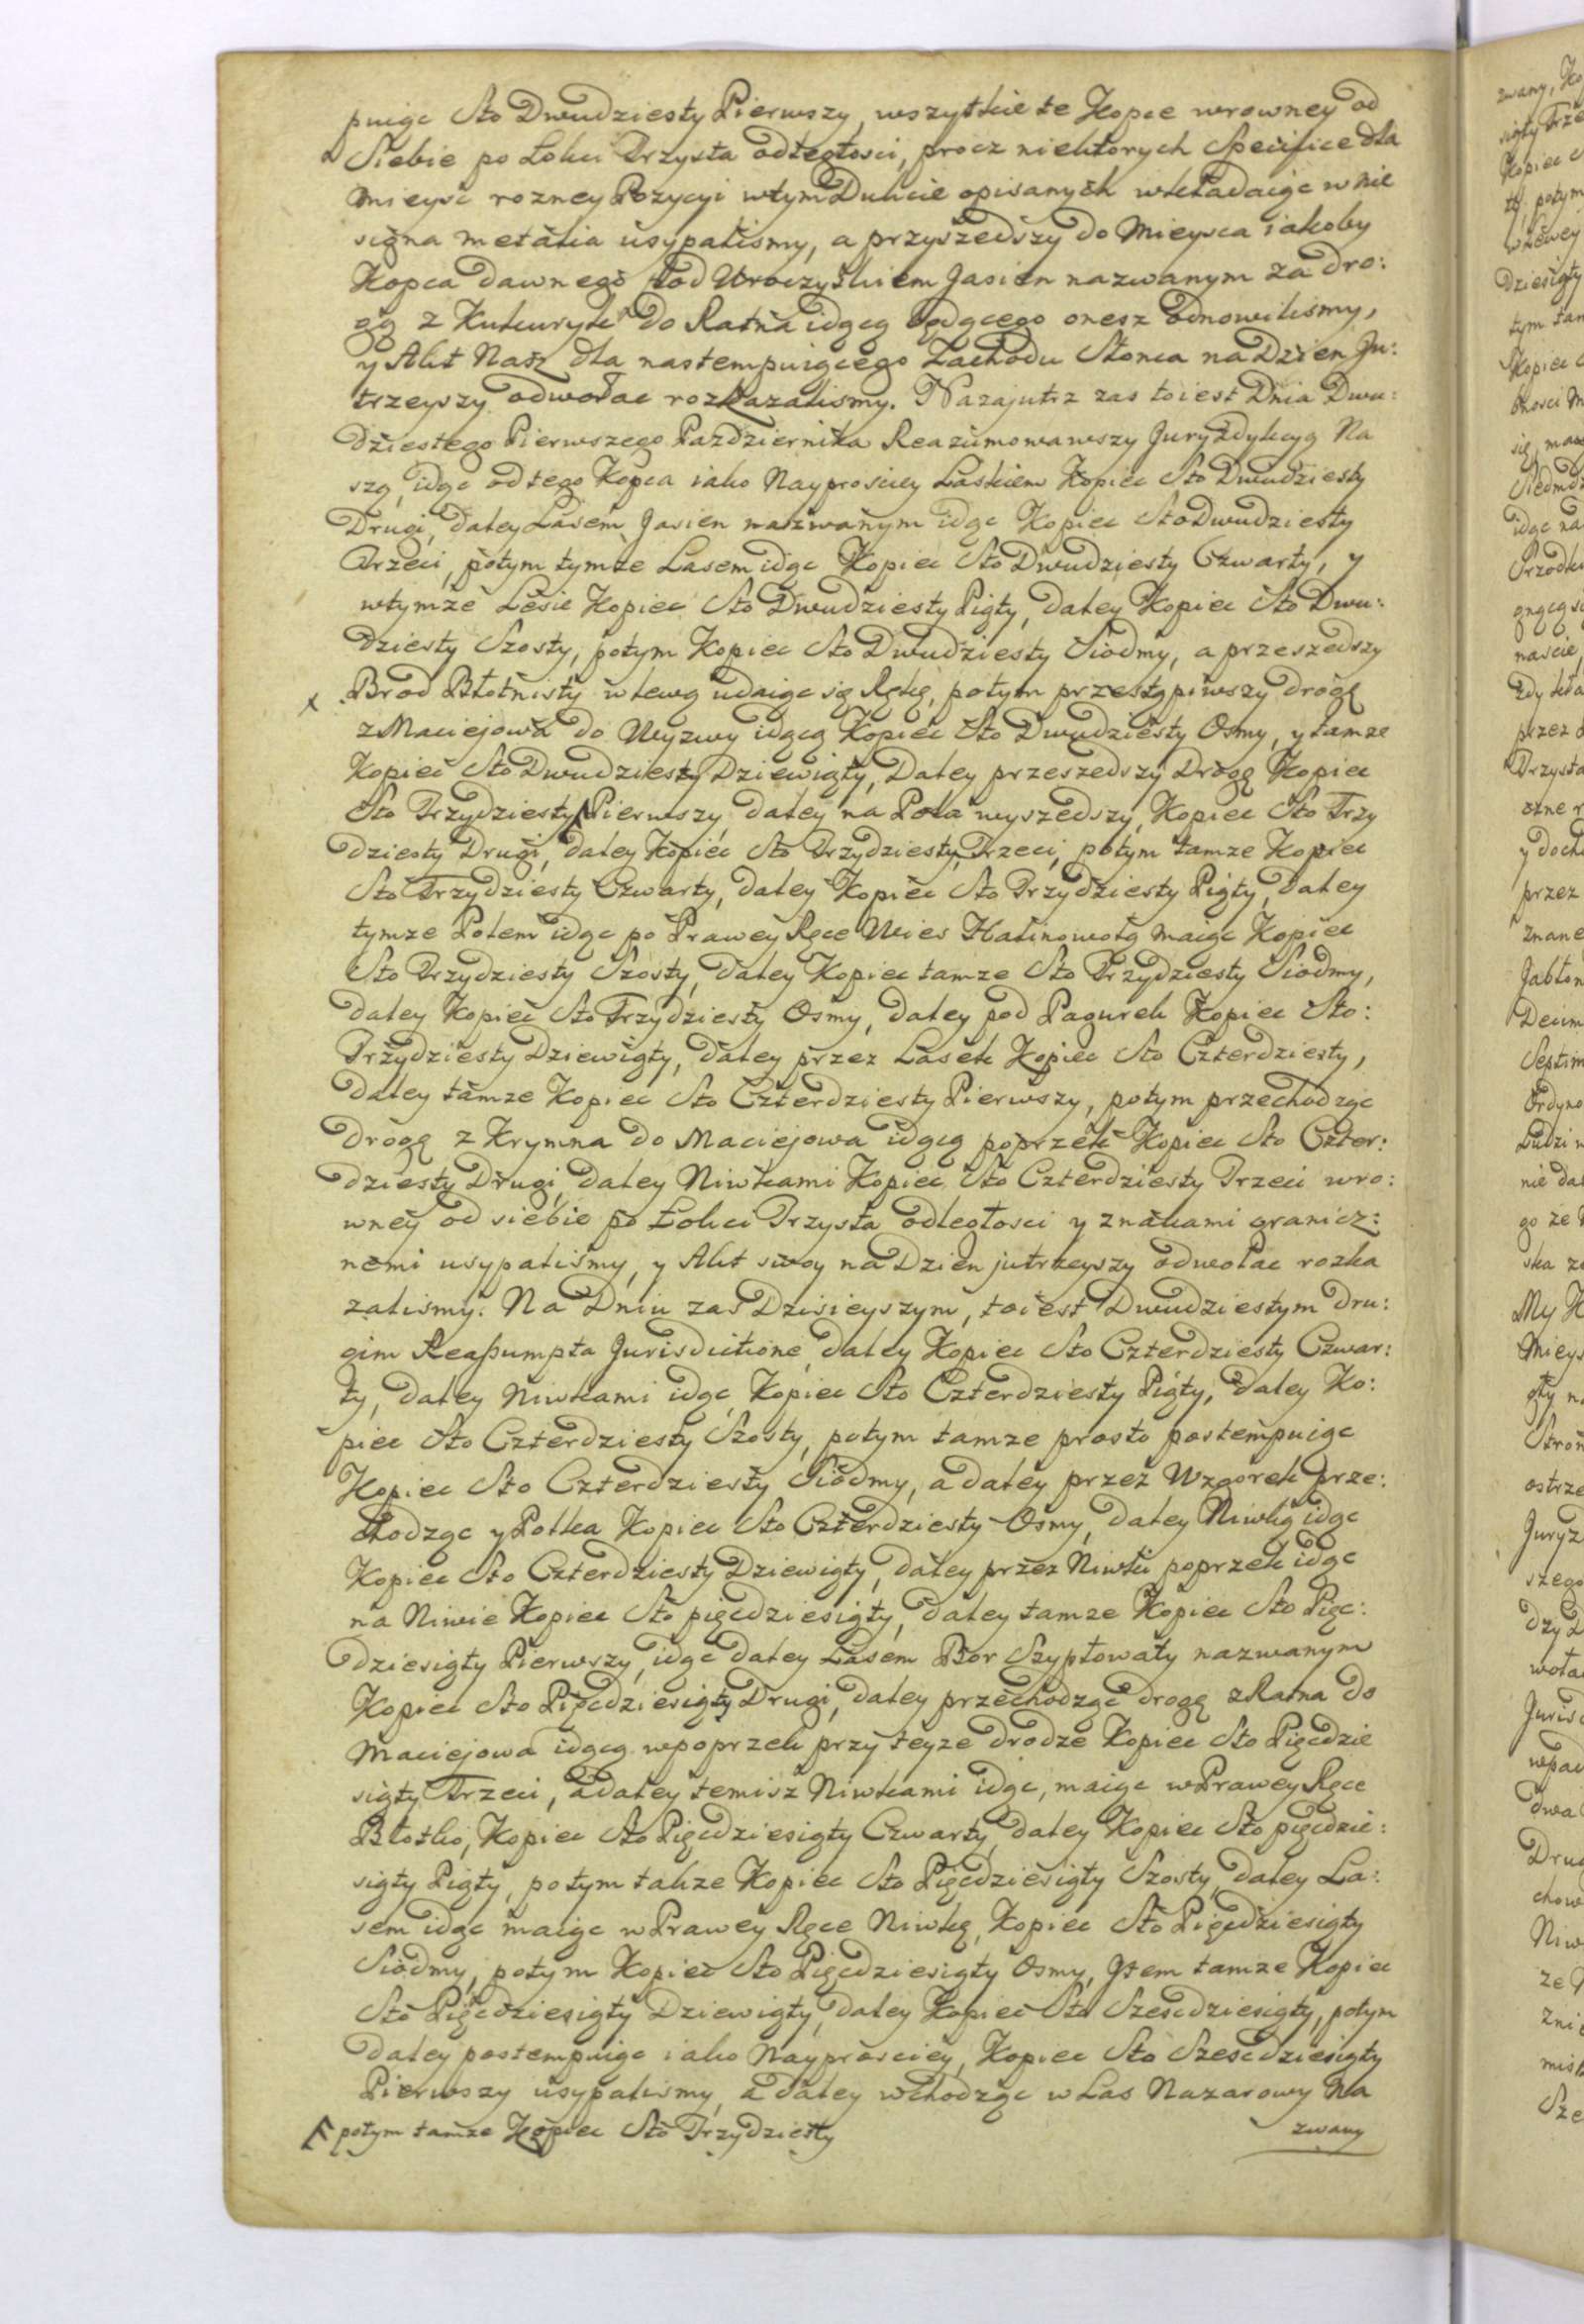 puiąc Sto Dwudziesty Pierwszy, wszytkie te Kopce wrowney od
Siebie po Łokci Trzysta odległosci, procz niektorych Specifice dla
Mieysc rozney Pozycyi wtym Dukcie opisanych wkładaiąc w nie
signa metalia usypalismy, a przyszedszy do Mieysca iakoby
Kopca dawnego Pod Uroczyskiem Jasien nazwanym za dro:
gą z Kukuryk do Ratna idącą będącego onesz odnowilismy,
y Akt Nasz dla nastempuiącego Zachodu Słonca na Dzien Ju:
trzeyszy odwołac rozkazalismy. Nazajutrz zas toiest Dnia Dwu:
dziestego Pierwszego Pazdziernika Reazumowawszy Juryzdykcyą Na
szą, idąc od tego Kopca iako Nayprosciey Laskiem Kopiec Sto Dwudziesty
Drugi, daley Lasem Jasien nazwanym idąc Kopiec Sto Dwudziesty
Trzeci, potym tymze Lasem idąc Kopiec Sto Dwudziesty Czwarty, y
wtymze Lesie Kopiec Sto Dwudziesty Piąty, daley Kopiec Sto Dwu:
dziesty Szosty, potym Kopiec Sto Dwudziesty Siodmy, a przeszedszy
x Brod Błotnisty w lewą udaiąc się Rękę, potym przestąpiwszy drogę
z Maciejowa do Wyzwy idącą Kopiec Sto Dwudziesty Osmy, y tamze
Kopiec Sto Dwudziesty Dziewiąty, Daley przeszedszy Drogę Kopiec
Sto Trzydziesty Pierwszy, daley na Pola wyszedszy, Kopiec Sto Trzy
dziesty Drugi, daley Kopiec Sto Trzydziesty Trzeci, potym tamze Kopiec
Sto Trzydziesty Czwarty, daley Kopiec Sto Trzydziesty Piąty, daley
tymze Polem idąc po Prawey Ręce Wies Halinowolą maiąc Kopiec
Sto Trzydziesty Szosty, daley Kopiec tamze Sto Trzydziesty Siodmy,
daley Kopiec Sto Trzydziesty Osmy, daley pod Pagurek Kopiec Sto:
Trzydziesty Dziewiąty, daley przez Lasek Kopiec Sto Czterdziesty,
daley tamze Kopiec Sto Czterdziesty Pierwszy, potym przechodząc
drogę z Krymna do Maciejowa idącą poprzek Kopiec Sto Czter:
dziesty Drugi, daley Niwkami Kopiec Sto Czterdziesty Trzeci wro:
wney od siebie po Łokci Trzysta odległosci y znakami granicz:
nemi usypalismy, y Akt swoy na Dzien jutrzeyszy odwołac rozka
zalismy. Na Dniu zas Dzisieyszym, toiest Dwudziestym dru:
gim Reassumpta Jurisdictione, daley Kopiec Sto Czterdziesty Czwar:
ty, daley Niwkami idąc, Kopiec Sto Czterdziesty Piąty, daley Ko:
piec Sto Czterdziesty Szosty, potym tamze prosto postempuiąc
Kopiec Sto Czterdziesty Siodmy, a daley przez Wzgorek prze:
chodząc y Polka Kopiec Sto Czterdziesty Osmy, daley Niwką idąc
Kopiec Sto Czterdziesty Dziewiąty, daley przez Niwki poprzek idąc
na Niwie Kopiec Sto pięcdziesiąty, daley tamze Kopiec Sto Pięc:
dziesiąty Pierwszy, idąc daley Lasem Bor Szypłowaty nazwanym
Kopiec Sto Pięcdziesiąty Drugi, daley przechodząc drogę z Ratna do
Maciejowa idącą wpoprzek przy teyze drodze Kopiec Sto Pięcdzie
siąty Trzeci, adaley temisz Niwkami idąc, maiąc w Prawey Ręce
Błotko, Kopiec Sto Pięcdziesiąty Czwarty, daley Kopiec Sto pięcdzie:
siąty Piąty, potym takze Kopiec Sto Pięcdziesiąty Szosty, daley La:
sem idąc maiąc w Prawey Ręce Niwkę, Kopiec Sto Pięcdziesiąty
Siodmy, potym Kopiec Sto Pięcdziesiąty Osmy, Item tamze Kopiec
Sto Pięcdziesiąty Dziewiąty, daley Kopiec Sto Szescdziesiąty, potym
daley postempuiąc iako Nayprosciey, Kopiec Sto Szescdziesiąty
Pierwszy usypalismy, a daley wchodząc w Las Nazarowy Na
potym tamze Kopiec Sto Trzydziesty
zwany